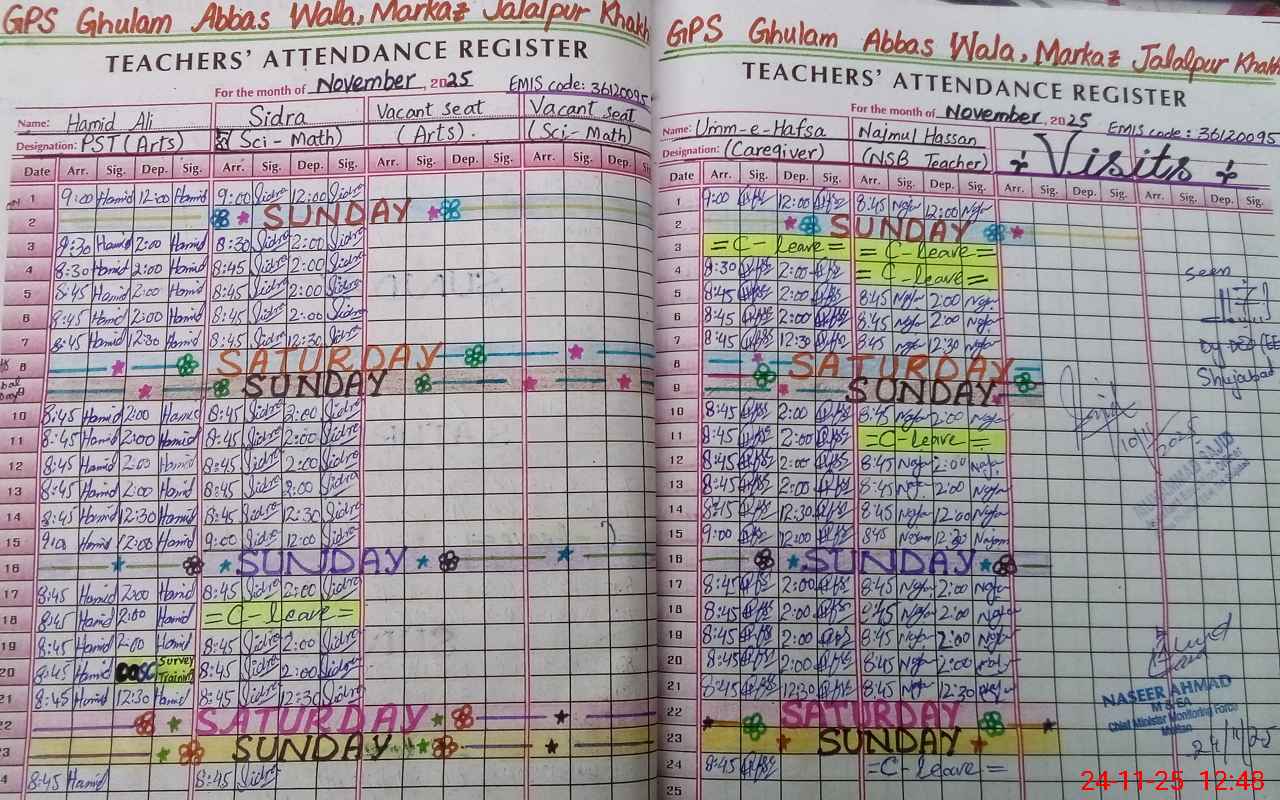 GPS Ghulam Abbas Wala, Markaz Jalalpur Khakh
TEACHERS' ATTENDANCE REGISTER
For the month of November, 2025 EMIS code: 36120095
Name: Hamid Ali Sidra Vacant seat Vacant seat
Designation: PST (Arts) (Sci-Math) (Arts). (Sci-Math)
Date Arr. Sig. Dep. Sig. Arr. Sig. Dep. Sig. Arr. Sig. Dep. Sig. Arr. Sig. Dep. Sig.
1 9:00 Hamid 12:00 Hamid 9:00 Sidra 12:00 Sidra
2 SUNDAY
3 Hamid 2:00 Hamid 8:30 Sidra 2:00 Sidra
4 8:30 Hamid 2:00 Hamid 8:45 Sidra 2:00 Sidra
5 8:45 Hamid 2:00 Hamid 8:45 Sidra 2:00 Sidra
6 8:45 Hamid 2:00 Hamid 8:45 Sidra 2:00 Sidra
7 8:45 Hamid 12:30 Hamid 8:45 Sidra 12:30 Sidra
8 SATURDAY
9 SUNDAY
10 8:45 Hamid 2:00 Hamid 8:45 Sidra 2:00 Sidra
11 8:45 Hamid 2:00 Hamid 8:45 Sidra 2:00 Sidra
12 8:45 Hamid 2:00 Hamid 8:45 Sidra 2:00 Sidra
13 8:45 Hamid 2:00 Hamid 8:45 Sidra 2:00 Sidra
14 8:45 Hamid 12:30 Hamid 8:45 Sidra 12:30 Sidra
15 Hamid 12:00 Hamid 9:00 Sidra 12:00 Sidra
16 SUNDAY
17 8:45 Hamid 2:00 Hamid 8:45 Sidra 2:00 Sidra
18 8:45 Hamid 2:00 Hamid = C-Leave =
19 8:45 Hamid 2:00 Hamid 8:45 Sidra 2:00 Sidra
20 8:45 Hamid Survey Training 8:45 Sidra 2:00 Sidra
21 8:45 Hamid 12:30 Hamid 8:45 Sidra 12:30 Sidra
22 SATURDAY
23 SUNDAY
4 8:45 Hamid 8:45 Sidra
GPS Ghulam Abbas Wala, Markaz Jalalpur Khakh
TEACHERS' ATTENDANCE REGISTER
For the month of November, 2025 EMIS code: 36120095
Name: Umm-e-Hafsa Najmul Hassan Visits
Designation: (Caregiver) (NSB Teacher)
Date Arr. Sig. Dep. Sig. Arr. Sig. Dep. Sig. Arr. Sig. Dep. Sig. Arr. Sig. Dep. Sig.
1 9:00 12:00 8:45 12:00
2 SUNDAY
3 = C-Leave = = C-Leave =
4 2:00 = C-Leave =
5 8:45 2:00 8:45 2:00
6 8:45 2:00 8:45 2:00
7 8:45 12:30 8:45 12:30
8 SATURDAY
9 SUNDAY
10 8:45 2:00 8:45 2:00
11 8:45 2:00 = C-Leave =
12 8:45 2:00 8:45 2:00
13 8:45 2:00 8:45 2:00
14 12:30 8:45 12:00
15 9:00 12:00 845
16 SUNDAY
17 8:45 2:00 8:45 2:00
18 8:45 2:00 2:00
19 8:45 2:00 8:45 2:00
20 8:45 2:00 8:45 2:00
21 8:45 12:30 8:45 12:30
22 SATURDAY
23 SUNDAY
24 8:45 = C-Leave =
25
seen
by
Shujabad
NASEER AHMAD
M & EA
Chief Minister Monitoring Force
Multan
24/11/25
24-11-25 12:48